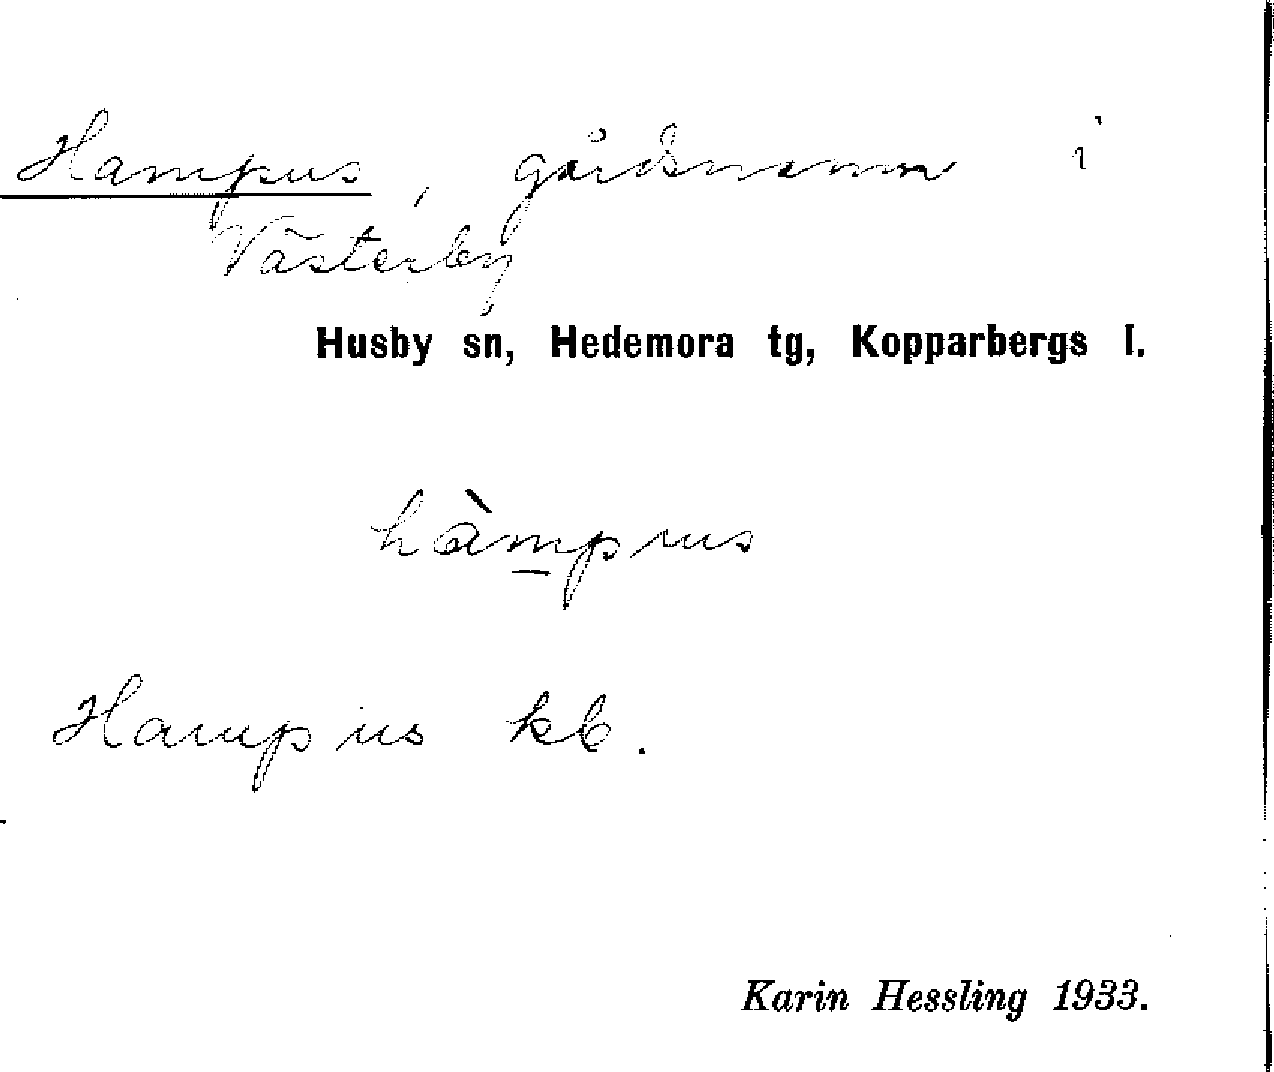 Hampus, gårdsnamn i
Västerby
Husby sn, Hedemora tg, Kopparbergs l.
hàmpus
Hampus kb.
Karin Hessling 1933.